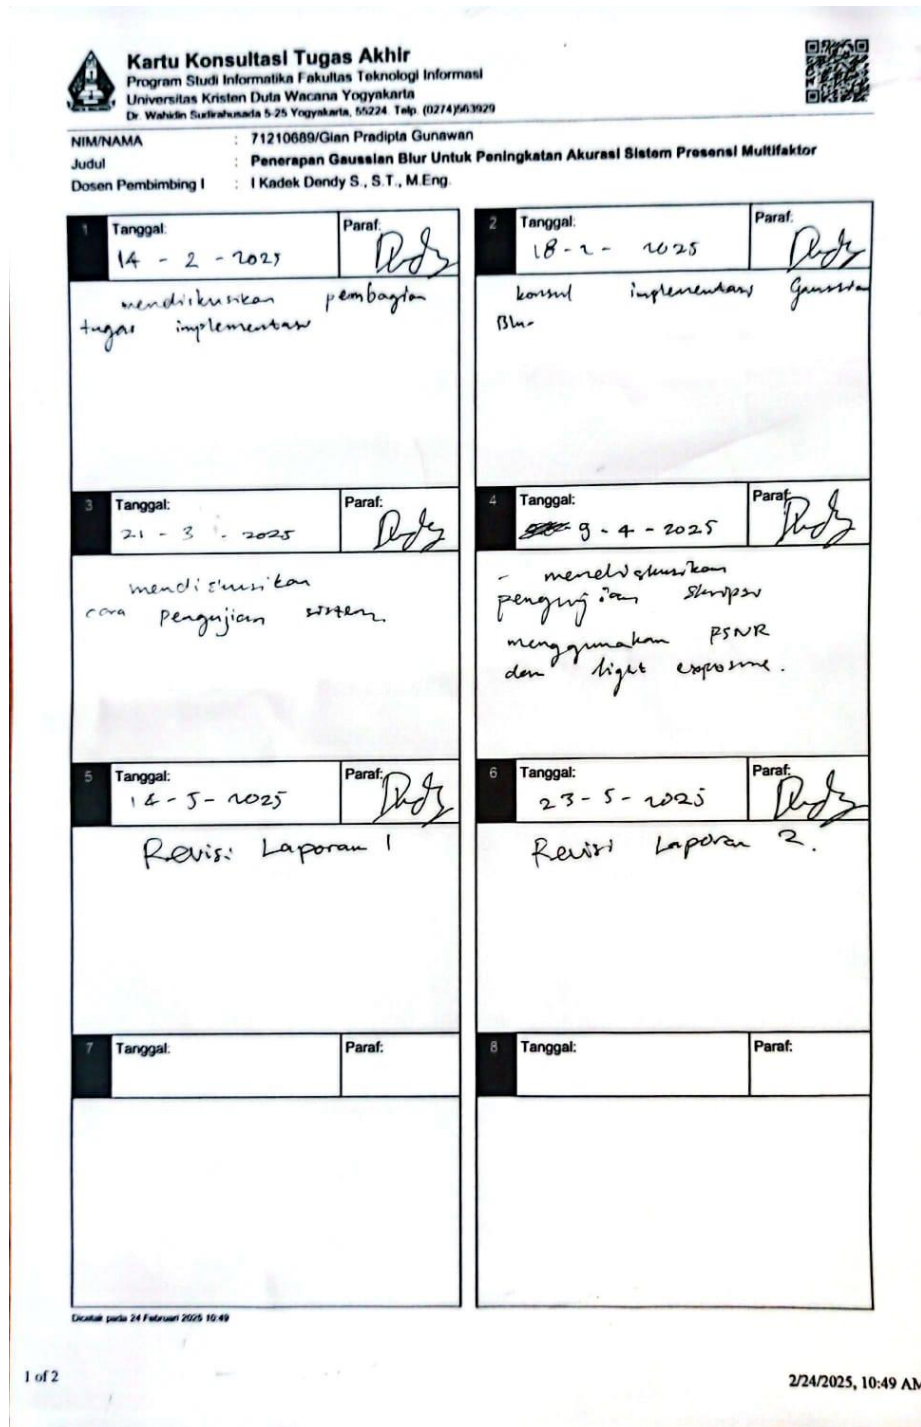 Kartu Konsultasi Tugas Akhir
Program Studi Informatika Fakultas Teknologi Informasi
Universitas Kristen Duta Wacana Yogyakarta
Dr. Wahidin Sudirahusada 5-25 Yogyakarta, 55224. Telp. (0274)563929
NIM/NAMA : 71210689/Gian Pradipta Gunawan
Judul : Penerapan Gaussian Blur Untuk Peningkatan Akurasi Sistem Presensi Multifaktor
Dosen Pembimbing I : I Kadek Dendy S., S.T., M.Eng.
1 Tanggal: Paraf:
14 - 2 - 2025
mendiskusikan pembagian
tugas implementasi
2 Tanggal: Paraf:
18 - 2 - 2025
konsul implementasi Gaussian
Blur
3 Tanggal: Paraf:
21 - 3 - 2025
mendiskusikan
cara pengujian sistem.
4 Tanggal: Paraf:
9 - 4 - 2025
- mendiskusikan
pengujian skripsi
menggunakan PSNR
dan light exposure.
5 Tanggal: Paraf:
14 - 5 - 2025
Revisi Laporan 1
6 Tanggal: Paraf:
23 - 5 - 2025
Revisi Laporan 2.
7 Tanggal: Paraf:
8 Tanggal: Paraf:
Dicetak pada 24 Februari 2025 10:49
1 of 2
2/24/2025, 10:49 AM